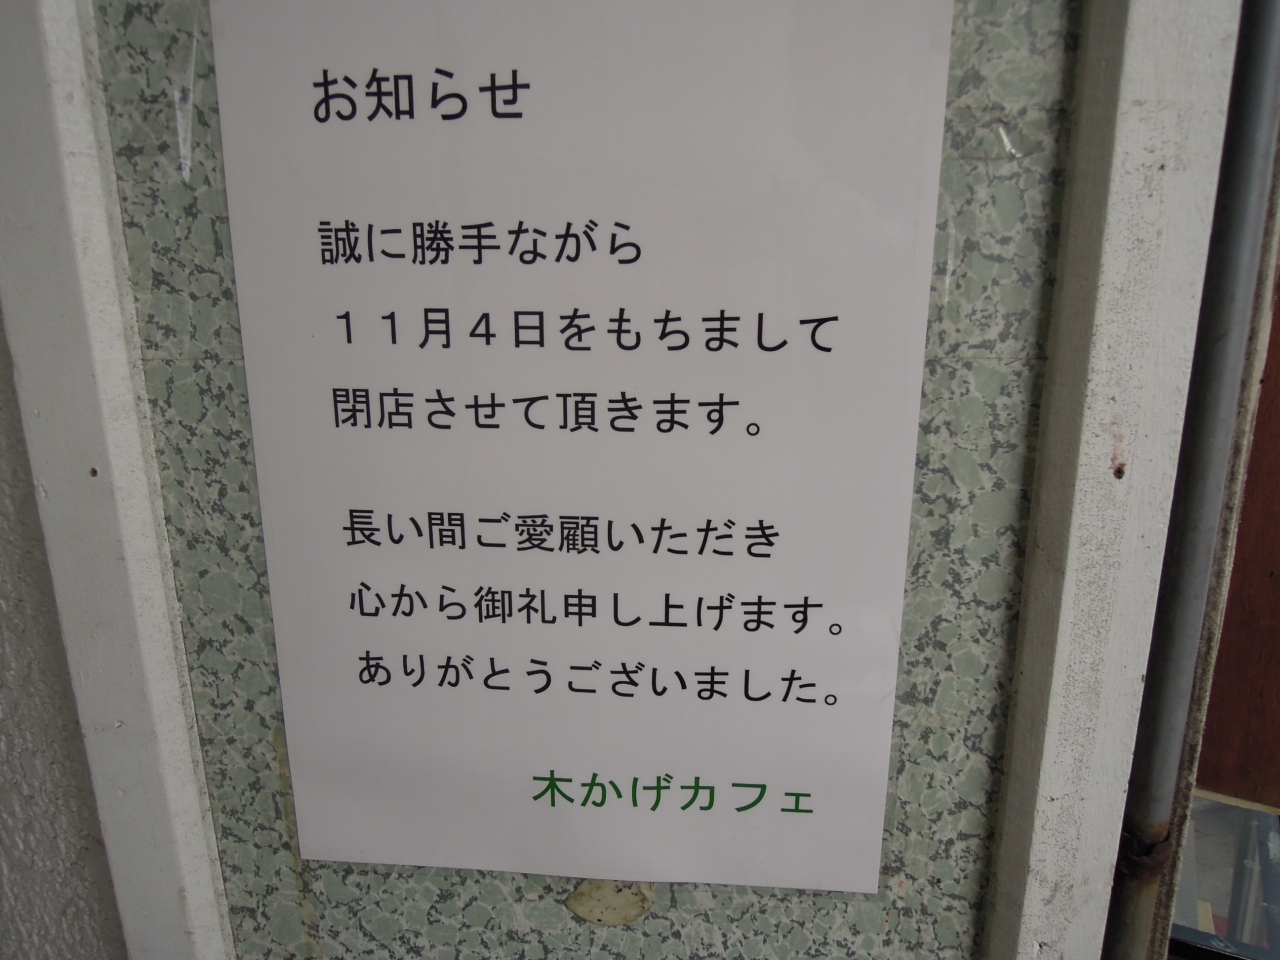 お知らせ
誠に勝手ながら
１１月４日をもちまして
閉店させて頂きます。
長い間ご愛顧いただき
心から御礼申し上げます。
ありがとうございました。
木かげカフェ